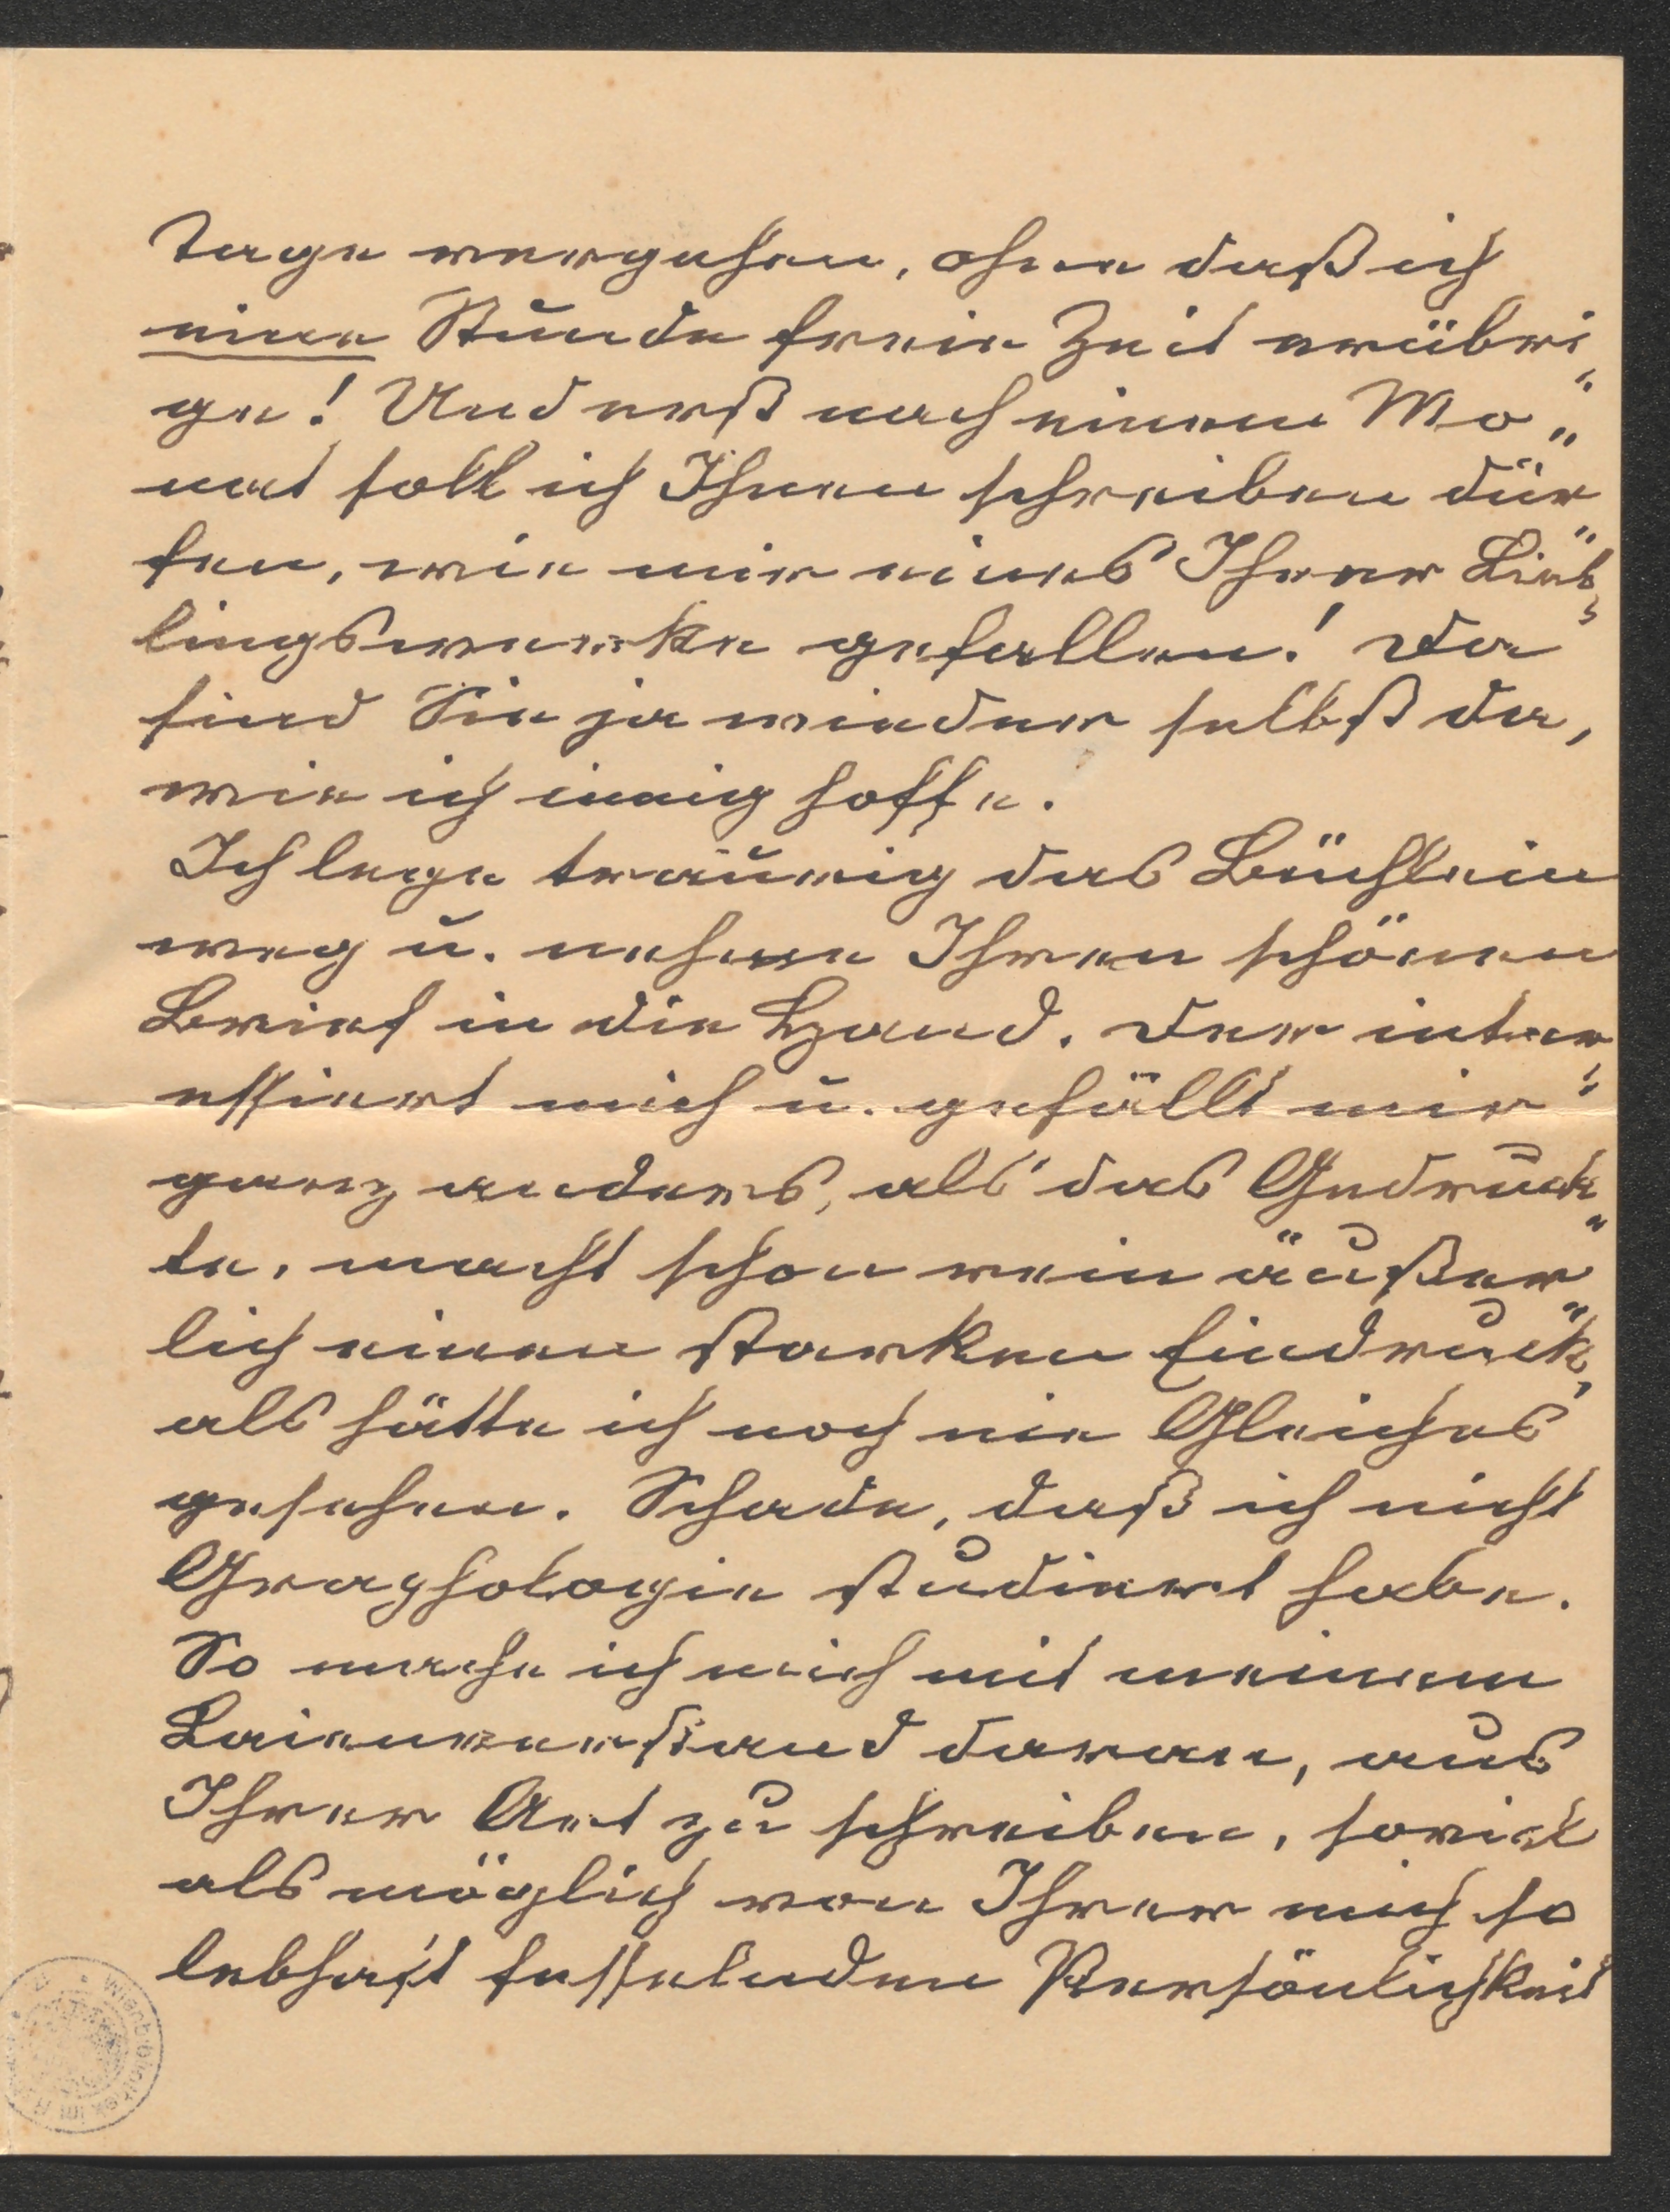 Tage vergehen, ohne daß ich
eine Stunde freie Zeit erübri„
ge! Und erst nach einem Mo„
nat soll ich Ihnen schreiben dür„
fen, wie mir eines Ihrer Lieb„
lingswerke gefallen! Da
sind Sie ja wieder selbst da,
wie ich innig hoffe.
Ich lege traurig das Büchlein
weg u. nehme Ihren schönen
Brief in die Hand. Der inter„
essiert mich u. gefällt mir
ganz anders, als das Gedruck„
te, macht schon rein äußer„
lich einen starken Eindruck,
als hätte ich noch nie Gleiches
gesehen. Schade, daß ich nicht
Graphologie studiert habe.
So mache ich mich mit meinem
Laienverstand daran, aus
Ihrer Art zu schreiben, soviel
als möglich von Ihrer mich so
lebhaft fesselnden Persönlichkeit
Wienbibliothek im